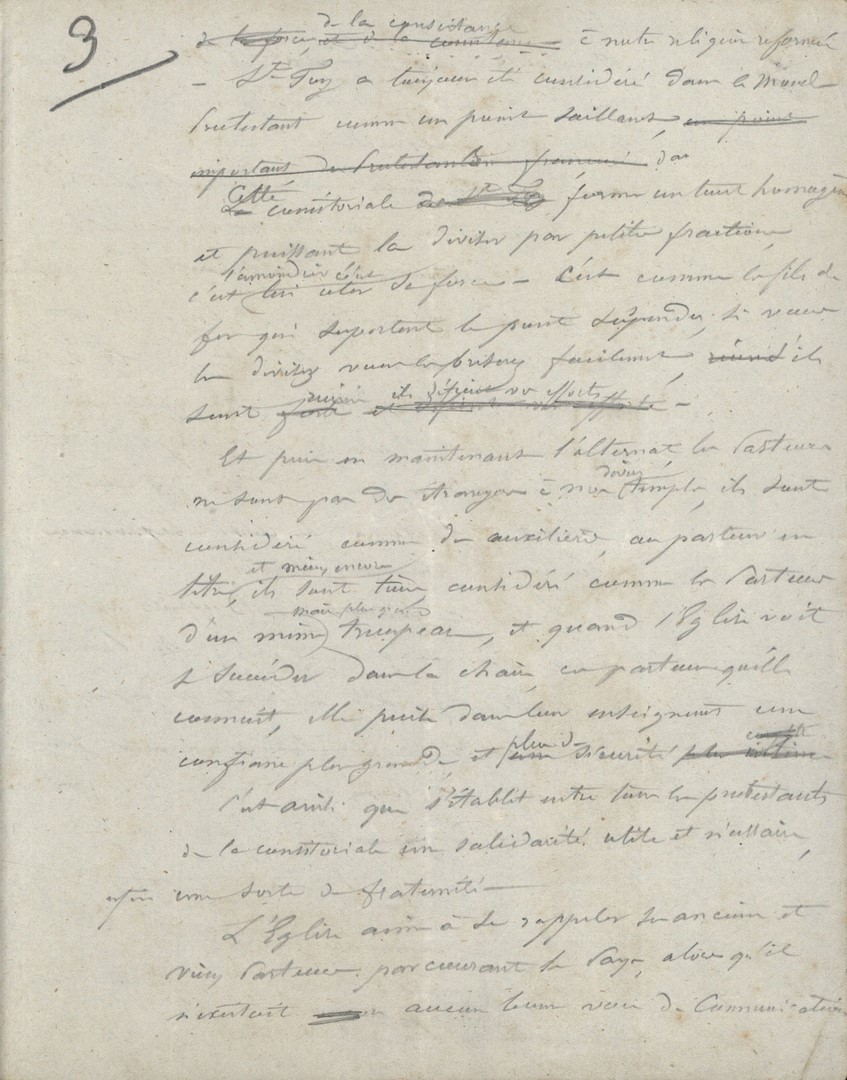 3
de la consistance
de la force et de la consistance à notre religion réformée
— Ste Foy a toujours été considéré dans le Monde
Protestant comme un point saillant, un point
important du Protestantisme français
Cette
La consistoriale de Ste Foy forme un tout homogène
et puissant la diviser par petites fractions
l'amoindrir c'est
c'est lui oter sa force — C'est comme les fils de
fer qui suportent le pont suspendu, si vous
les divisez vous les brisez facilement, réunis ils
ils défient vos efforts
sont forts et défient vos efforts —
Et puis en maintenant l'alternat les Pasteurs
divers
ne sont pas des étrangers à nos temples, ils sont
considéré comme des auxilières, au pasteur en
et mieux encore
titre, ils sont tous considéré comme les Pasteurs
mais plus
d'un même troupeau, et quand l'Eglise voit
se succéder dans la chaire, ces pasteurs qu'elle
connait, elle puise dans leur enseignement une
plus de
confiance plus grande, et une sécurité plus intime
C'est ainsi que s'établit entre tous les protestants
de la consistoriale une solidarité utile et nécessaire,
enfin une sorte de fraternité —
L'Eglise aime à se rappeler ses anciens et
vieux Pasteurs parcourant le Pays, alors qu'il
n'existait aucun bonne voie de Communication